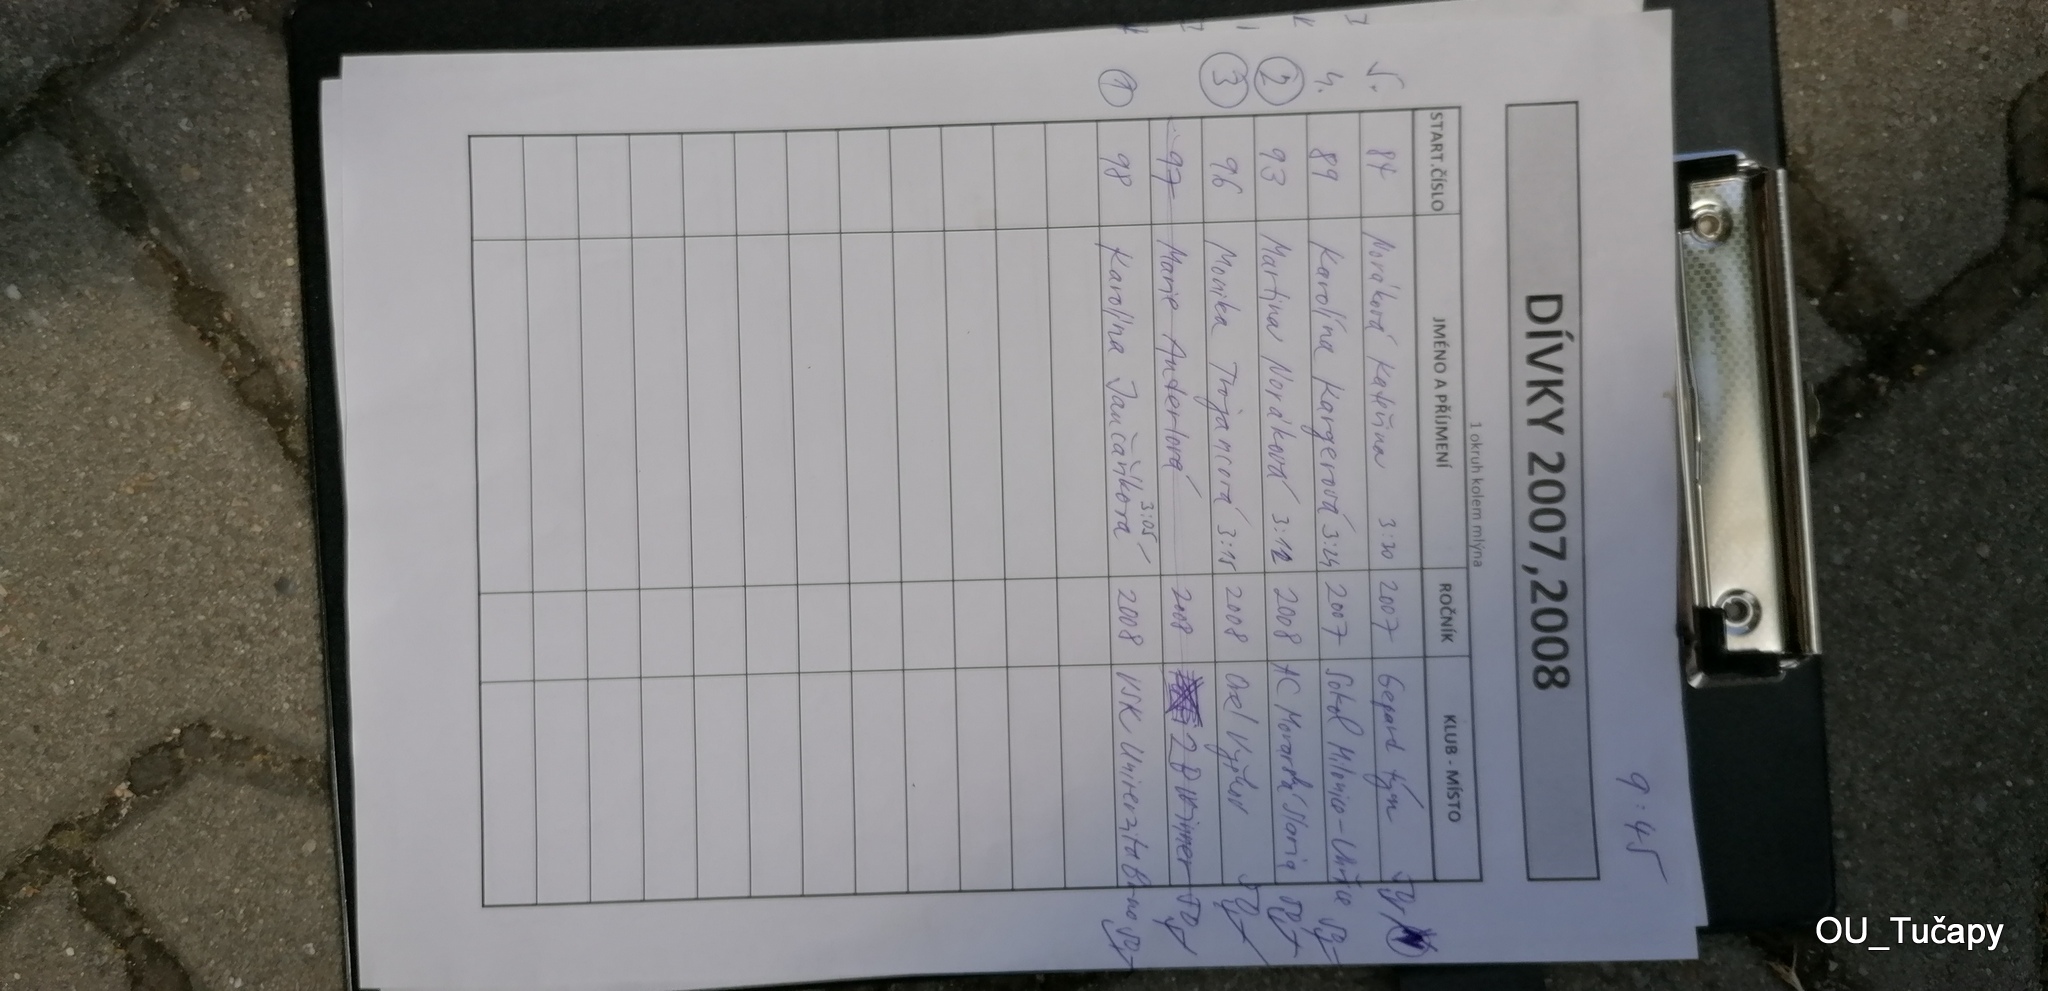 9:45
DÍVKY 2007,2008
1 okruh kolem mlýna
START.ČÍSLO JMÉNO A PŘÍJMENÍ ROČNÍK KLUB - MÍSTO
5. 84 Nováková Kateřina 3:30 2007 Gepard tým
4. 89 Karolína Kargerová 3:24 2007 Sokol Milonice-Uhřice
2 93 Martina Nováková 3:12 2008 AC Moravská Slavia
3 96 Monika Trojancová 3:15 2008 Orel Vyškov
97 Marie Anderlová 2008
3:05
1 98 Karolína Jančaříková 2008 VSK Univerzita Brno
OU_Tučapy